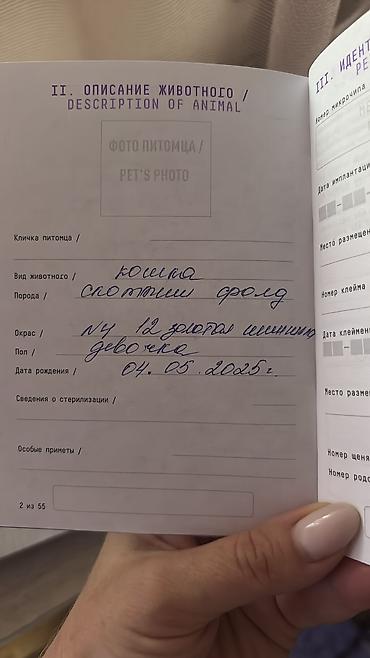 II. ОПИСАНИЕ ЖИВОТНОГО /
DESCRIPTION OF ANIMAL
ФОТО ПИТОМЦА /
PET'S PHOTO
Кличка питомца /
Вид животного / кошка
Порода / скоттиш фолд
Окрас / NY 12 золотая шиншилла
Пол / девочка
Дата рождения / 04.05.2025г.
Сведения о стерилизации /
Особые приметы /
2 из 55
III. ИДЕНТ
Номер микрочипа
Дата имплантаци
Место размещен
Номер клейма
Дата клеймен
Место разме
Номер щеня
Номер родо